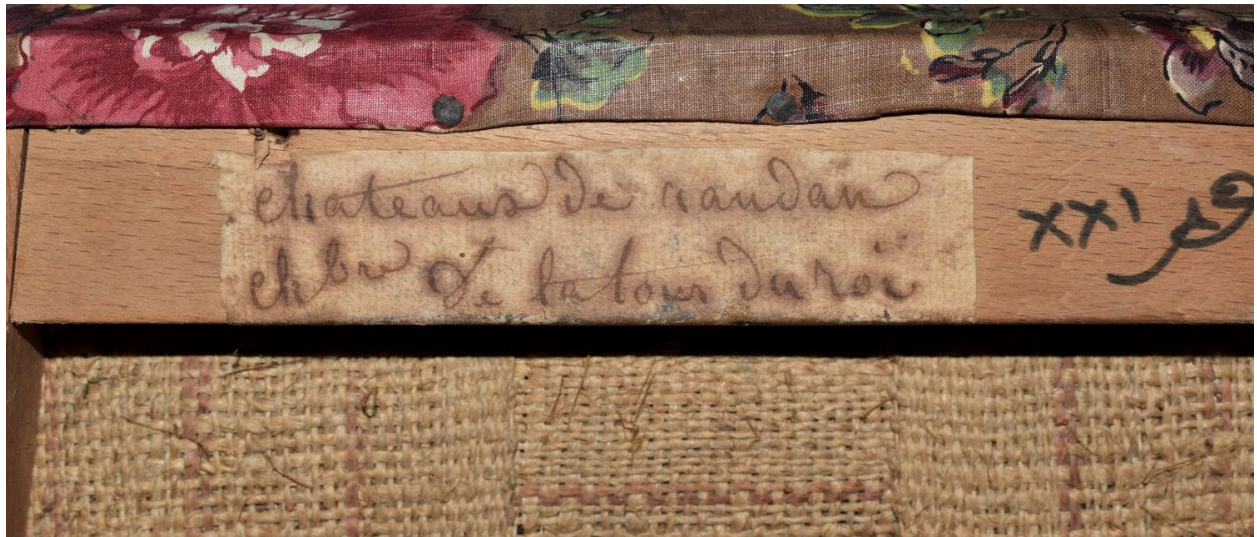 chateaux de randan
chbre de la tour du roi
XXI